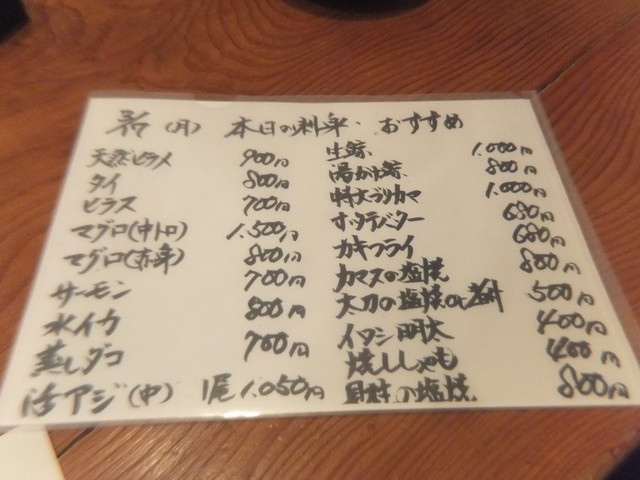 3/7 (月) 本日の料理・おすすめ
天然ヒラメ 900円
タイ 800円
ヒラス 700円
マグロ(中トロ) 1.500円
マグロ(赤身) 800円
サーモン 700円
水イカ 800円
蒸しダコ 700円
活アジ(中) 1尾 1.050円
生鯨 1.000円
湯かけ鯨 800円
特大ブリカマ 1.000円
ホタテバター 680円
カキフライ 680円
カマスの塩焼 800円
太刀の塩焼 or 500円
イワシ明太 400円
焼ししゃも 400円
の塩焼 800円